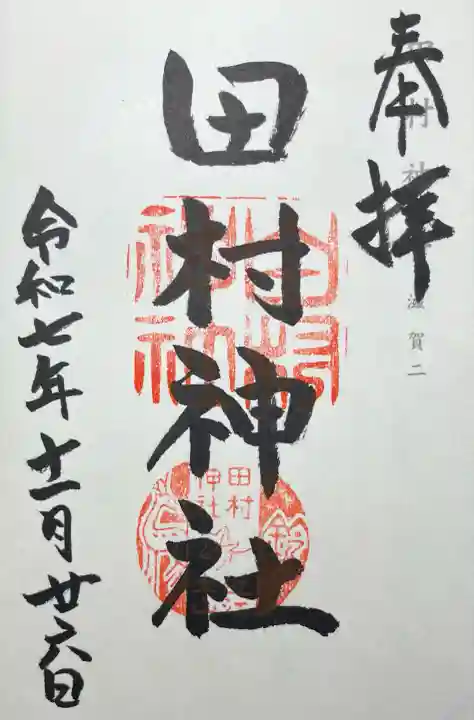 奉拝
田村神社
滋賀二
田村
神社
令和七年十一月廿六日